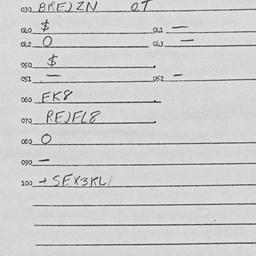 030 BREJZN OT
040 $ 041 —
042 O 043 —
050 $
051 — 052 —
060 FK8
070 REJFL8
080 O
090 —
100 + SFX3KL